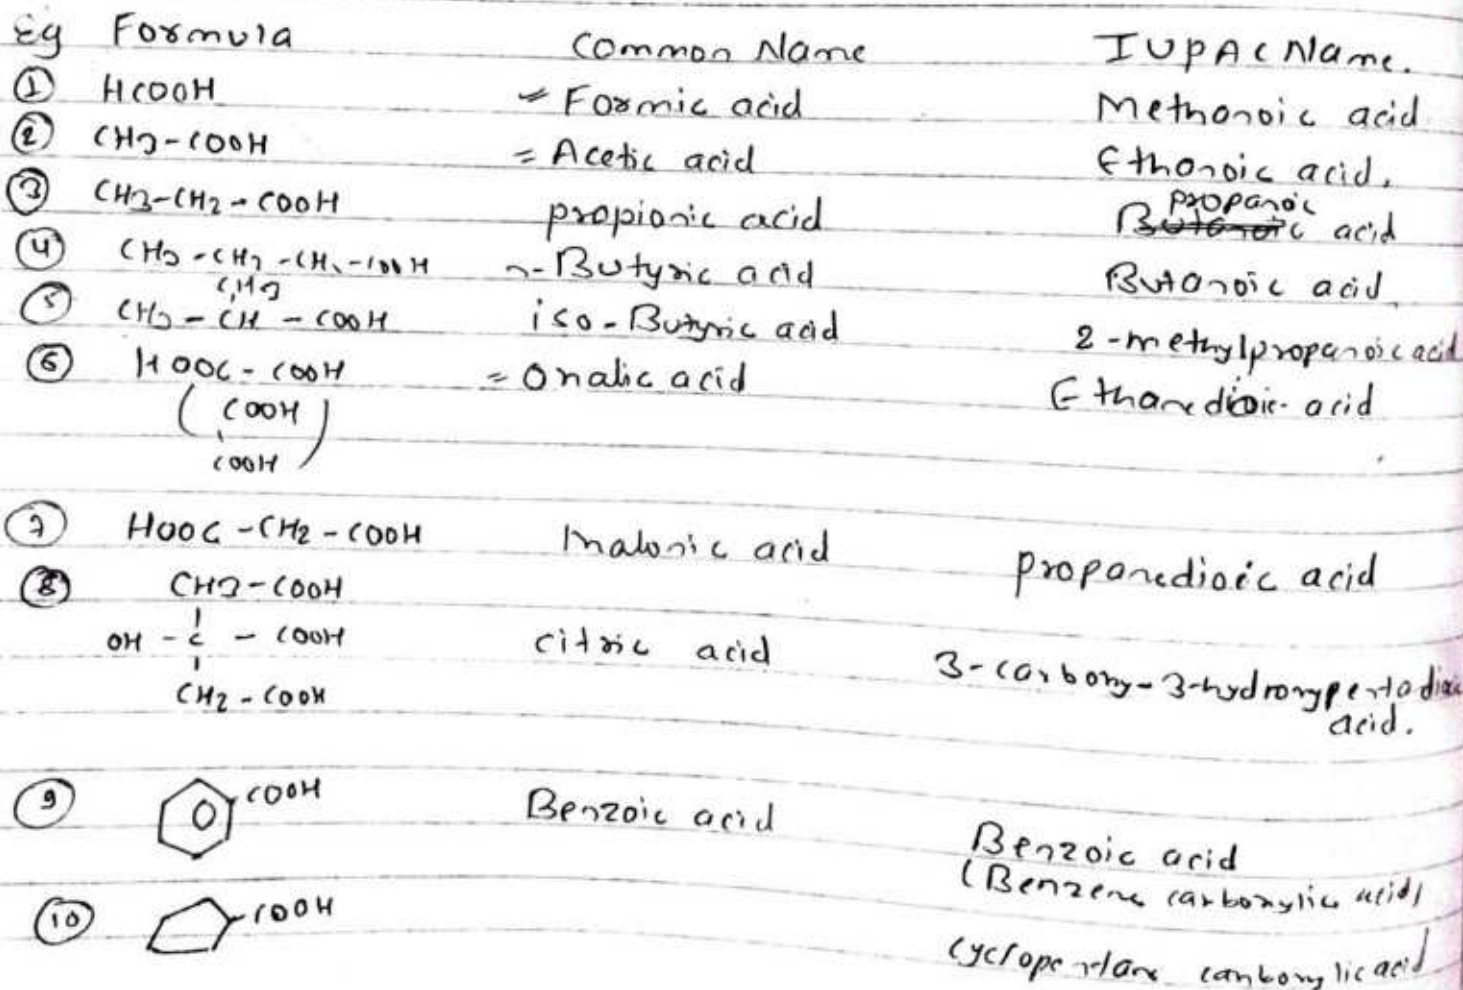 Eg Formula Common Name IUPAC Name.
① HCOOH = Formic acid Methanoic acid
② CH3-COOH = Acetic acid Ethanoic acid.
③ CH3-CH2-COOH propionic acid Butanoic propanoic acid
④ CH3-CH2-CH2-COOH n-Butyric acid Butanoic acid
CH3
⑤ CH3-CH-COOH iso-Butyric acid 2-methylpropanoic acid
⑥ HOOC-COOH = Oxalic acid Ethanedioic acid
(COOH
COOH)
⑦ HOOC-CH2-COOH Malonic acid propanedioic acid
⑧ CH2-COOH
OH-C-COOH citric acid 3-carboxy-3-hydroxypentadioic
acid.
CH2-COOH
⑨ COOH Benzoic acid Benzoic acid
(Benzene carboxylic acid)
⑩ COOH cyclopentane carboxylic acid